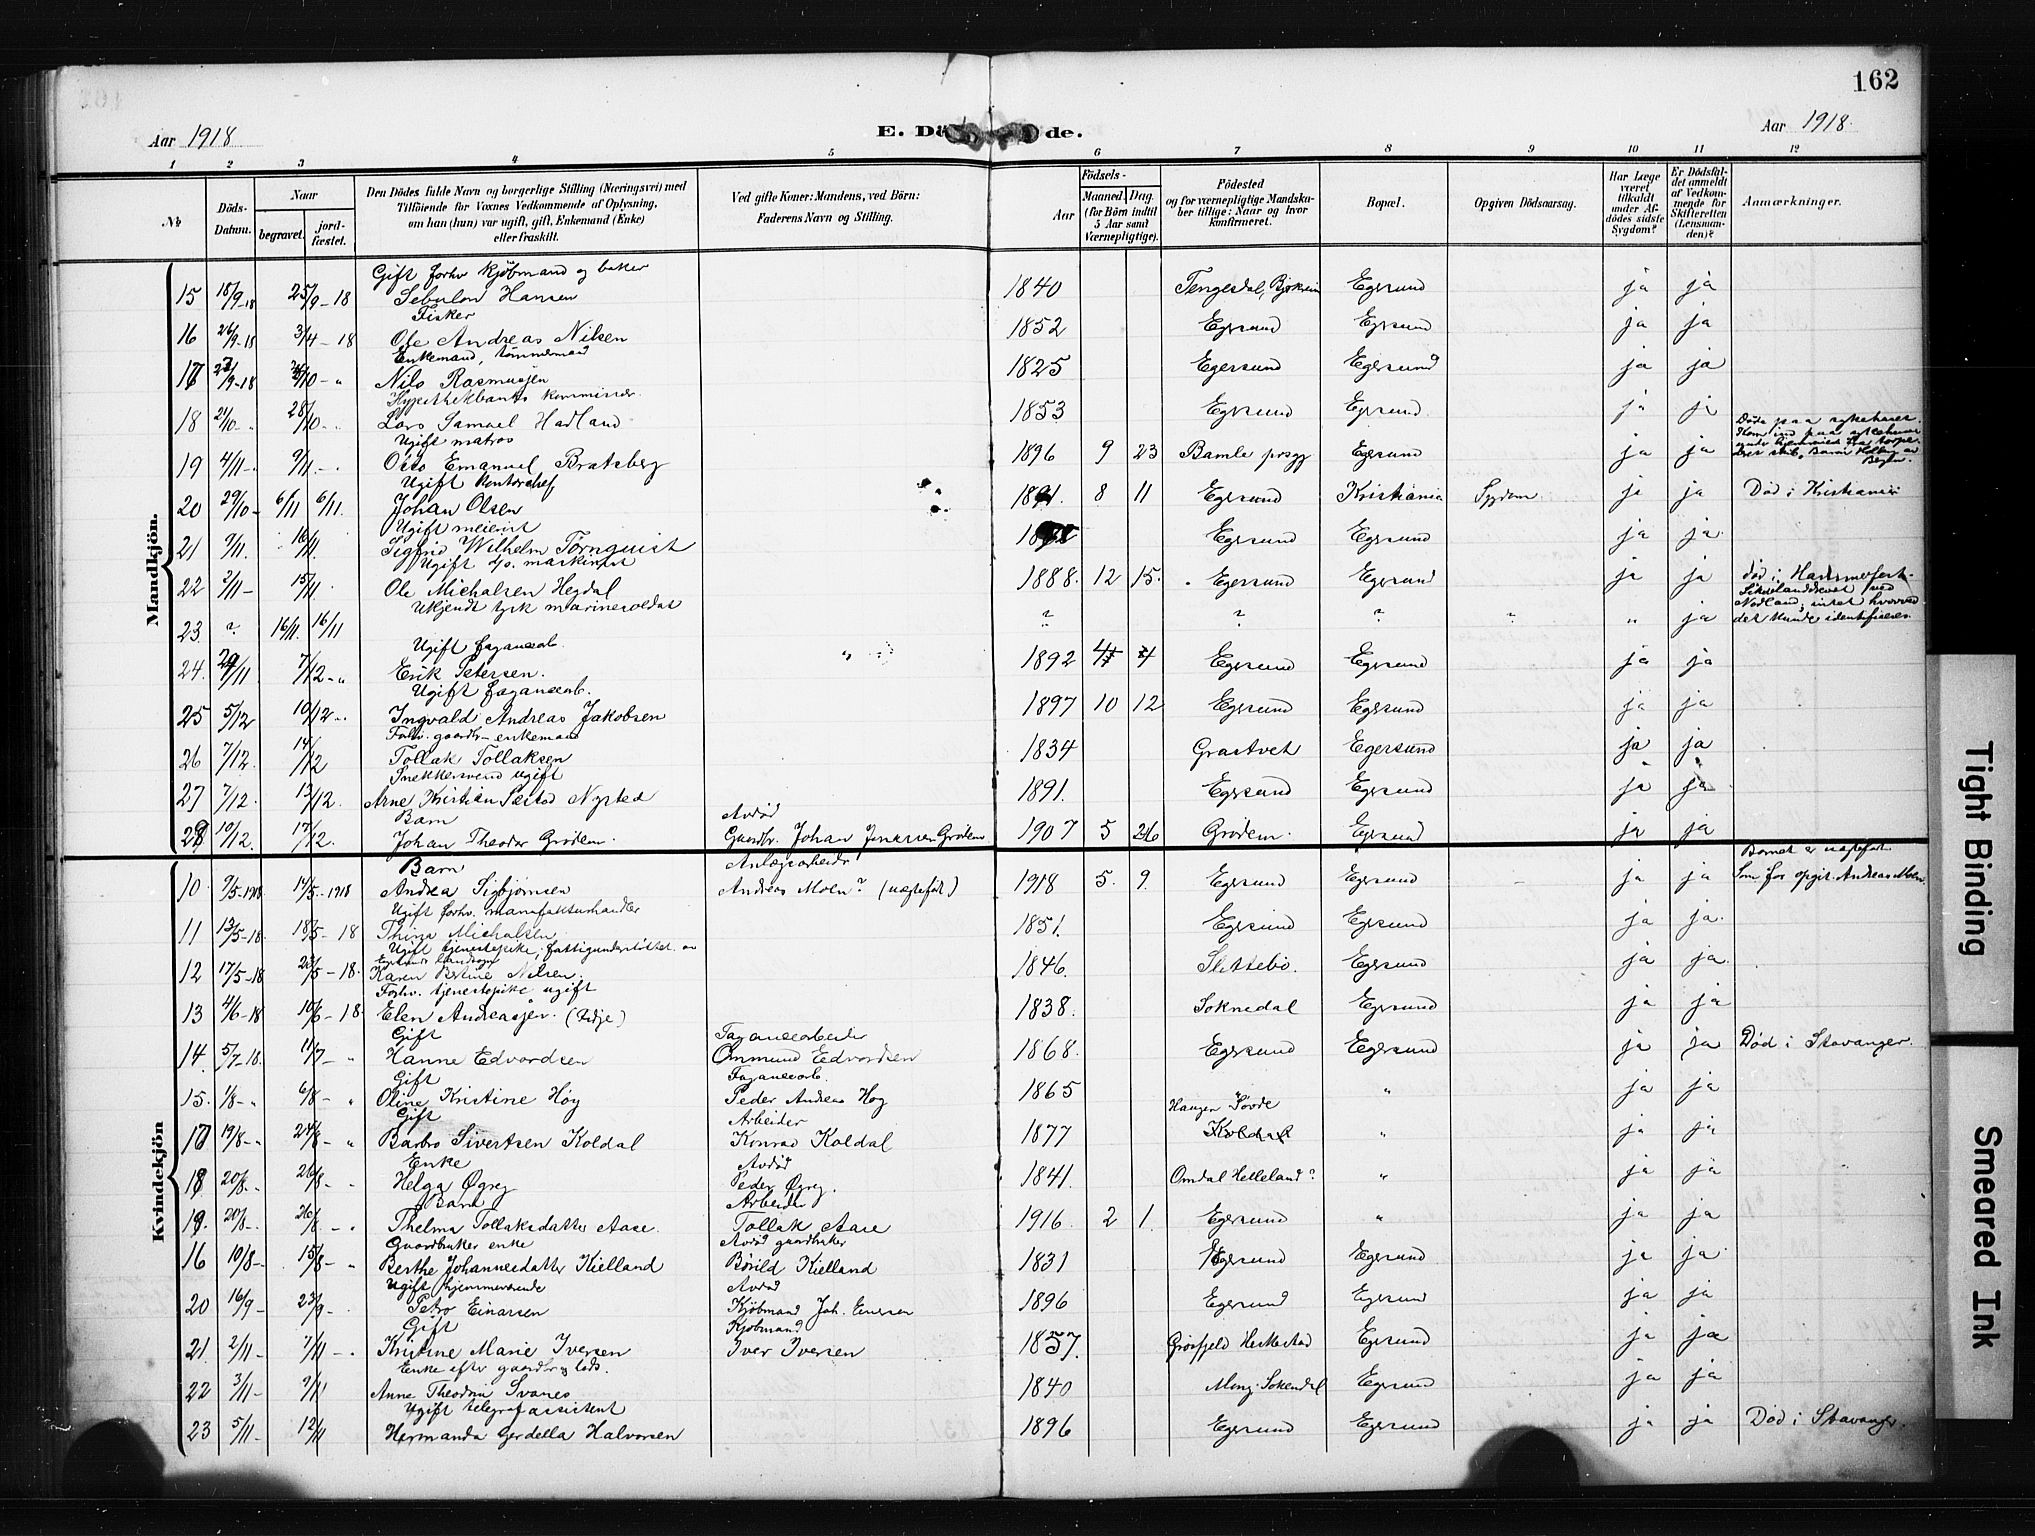 162
Aar 1918
E. Dö de.
Aar 1918.
1 2 3 4 5 6 7 8 9 10 11 12
No
Döds-Datum.
Naar
begravet.
jord-fæstet.
Den Dödes fulde Navn og borgerlige Stilling (Næringsvei) med
Tilföiende for Voxnes Vedkommende af Oplysning,
om han (hun) var ugift, gift, Enkemand (Enke)
eller fraskilt.
Ved gifte Koner: Mandens, ved Börn:
Faderens Navn og Stilling.
Födsels-
Aar
Maaned. Dag.
(for Börn indtil
5 Aar samt
Værnepligtige).
Födested
og for værnepligtige Mandsku-
ber tillige: Naar og hvor
konfirmeret.
Bopæl.
Opgiven Dödsaarsag.
Har Læge
været
tilkaldt
under Af-
dödes sidste
Sygdom?
Er Dödsfal-
det anmeldt
af Vedkom-
mende for
Skifteretten
(Lensman-
den)?
Anmærkninger.
Mandkjön.
Gift forhv kjöbmand og baker
15 18/9-18 25/9-18 Sebulon Hansen 1840 Tengesdal, Bjerkreim Egersund ja ja
Fisker
16 26/9-18 3/4-18 Ole Andreas Nilsen 1852 Egersund Egersund ja ja
Enkemand, tömmermand
17 Nils Rasmussen 1825 Egersund Egersund ja ja
Hypothekbanks kommissær
18 21/10 28/10 Lars Samuel Hadland 1853 Egersund Egersund ja ja
Ugift matros
19 4/11 9/11 Otto Emanuel Bratsberg 1896 9 23 Bamle prsgj Egersund ja ja
Døde paa sykehuset.
Kom ind paa sykehuset
Ugift kontorchef
20 29/10 6/11 6/11. Johan Olsen 8 11 Egersund Kristiania Sygdom ja ja Død i Kristiania
Ugift meierist
21 9/11. 16/11 Sigfrid Wilhelm Törnquist Egersund Egersund ja ja
Ugift d/o. maskinist
22 3/11 15/11 Ole Michalsen Hegdal 1888. 12 15. Egersund Egersund ja ja
Ukjendt tysk marinesoldat
23 ? 16/11. 16/11 ? ? ? " " ja
Nodland, intet hvorved
det kunde identificeres.
Ugift fayancearb.
24. 7/12 Erik Petersen. 1892 4 Egersund Egersund ja ja
Ugift fayancearb.
25 5/12 10/12 Ingvald Andreas Jakobsen 1897 10 12 Egersund Egersund ja ja
Forhv. gaardbr. enkemand
26 7/12. 14/12 Tollak Tollaksen 1834 Grastvet Egersund ja ja
Snekkersvend ugift
27 7/12. 13/12. Arne Kristian Nysted 1891. Egersund Egersund ja ja
Barn Avdød
28 10/12. 17/12. Johan Theodor Grödem. Gaardbr. Johan Jonassen Grödem 1907 5 26 Grödem. Egersund ja ja
Kvindekjön
Barn Anlægsarbeider
10 9/5-1918 14/5-1918 Andrea Sigbjörnsen Andreas Moen? (uægtefdt) 1918 5. 9. Egersund Egersund ja ja
Barnet er uægtefdt.
Som far opgit. Andreas Moen.
Ugift forhv. manufakturhandler
11 13/5-18. 18/5-18 Thina Michalsen 1851. Egersund Egersund ja ja
Ugift tjenestepike, fattigunderstöttet av
Egersunds landsogn
12 17/5-18 23/5-18. Karen Bertine Nilsen. 1846. Slettebö. Egersund ja ja
Forhv. tjenestepike ugift
13 4/6-18 10/6-18 Elen Andreassen. 1838. Soknedal Egersund ja ja
Gift Fayancearbeider
14. 5/7-18. 11/7 Hanne Edvardsen Ommund Edvardsen 1868. Egersund Egersund ja ja Død i Stavanger.
Gift Fayancearb.
15. 1/8 6/8 Oline Kristine Höy Peder Andreas Höy 1865 " " ja ja
Gift Arbeider Haugen Sovde
17 19/8 24/8 Barbro Sivertsen Koldal Konrad Koldal 1877 Koldal " ja ja
Enke Avdød
18 20/8. 26/8 Helga Øgrey Peder Øgrey. 1841. Omdal Helleland? " ja ja
Barn Arbeider
19. 20/8 26/8 Thelma Tollaksdatter Aase. Tollak Aase 1916. 2 1. Egersund " ja ja
Gaardbruker enke Avdød gaardbruker
16 10/8 15/8 Berthe Johannesdatter Kielland Börild Kielland 1831 Egersund Egersund ja ja
Ugift hjemmeværende Avdød
20 16/9 23/9 Petra Einarsen Kjöbmand Joh. Einersen 1896 Egersund Egersund ja ja
Gift Kjöbmand
21. 2/11 7/11 Kristine Marie Iversen Iver Iversen 1857. Grösfjeld Heskestad Egersund ja ja
Enke efter gaardbr og lods.
22 3/11 9/11 Anne Theodora Svanes 1840 Mong. Sokendal Egersund ja ja
Ugift telegrafassistent
23 5/11 12/11 Hermanda Gerdella Halvorsen 1896 Egersund Egersund ja ja Død i Stavanger.
Tight Binding
Smeared Ink